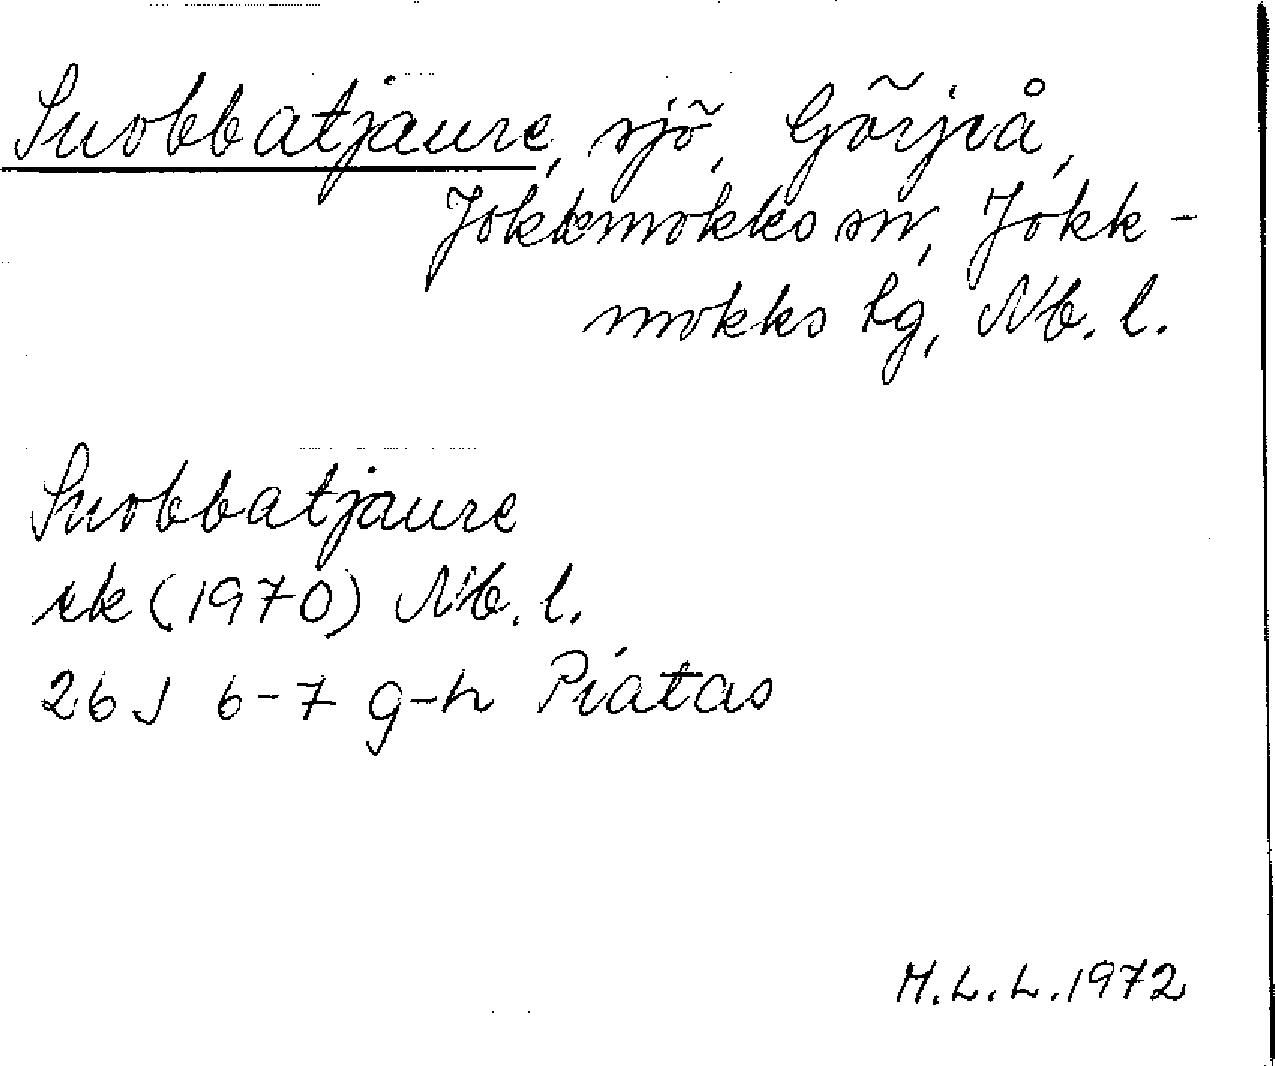 Suobbatjaure, sjö, Görjeå,
Jokkmokks sn, Jokk-
mokks lg, Nb. l.
Suobbatjaure
rk (1970) Nb. l.
26 J 6-7 g-h Piatas
M.L.L. 1972